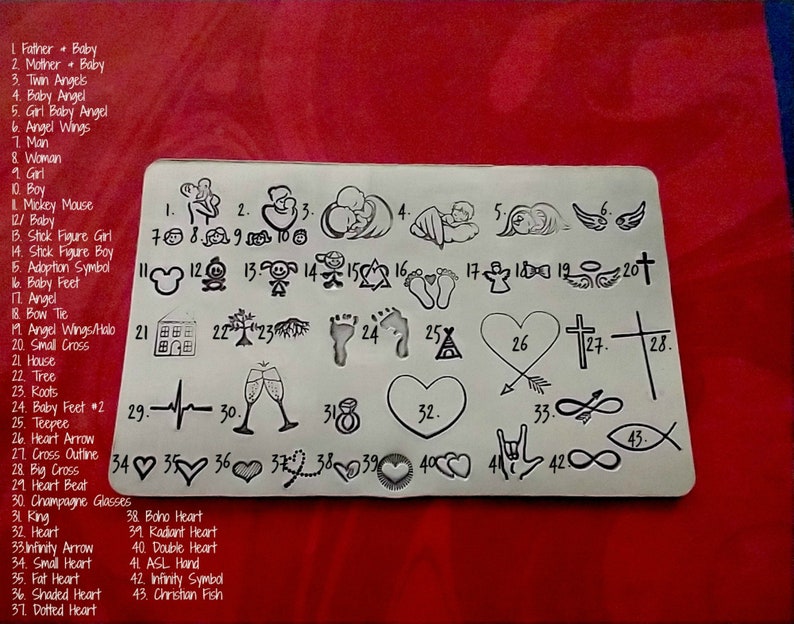 1. Father & Baby
2. Mother & Baby
3. Twin Angels
4. Baby Angel
5. Girl Baby Angel
6. Angel Wings
7. Man
8. Woman
9. Girl
10. Boy
11. Mickey Mouse
12/ Baby
13. Stick Figure Girl
14. Stick Figure Boy
15. Adoption Symbol
16. Baby Feet
17. Angel
18. Bow Tie
19. Angel Wings/Halo
20. Small Cross
21. House
22. Tree
23. Roots
24. Baby Feet #2
25. Teepee
26. Heart Arrow
27. Cross Outline
28. Big Cross
29. Heart Beat
30. Champagne Glasses
31. Ring
32. Heart
33.Infinity Arrow
34. Small Heart
35. Fat Heart
36. Shaded Heart
37. Dotted Heart
38. Boho Heart
39. Radiant Heart
40. Double Heart
41. ASL Hand
42. Infinity Symbol
43. Christian Fish
1. 2. 3. 4. 5. 6.
7 8. 9 10
11 12 13. 14 15 16 17 18 19 20
21 22 23 24 25 26 27. 28.
29. 30. 31 32. 33.
34 35 36 37 38 39 40 41 42. 43.